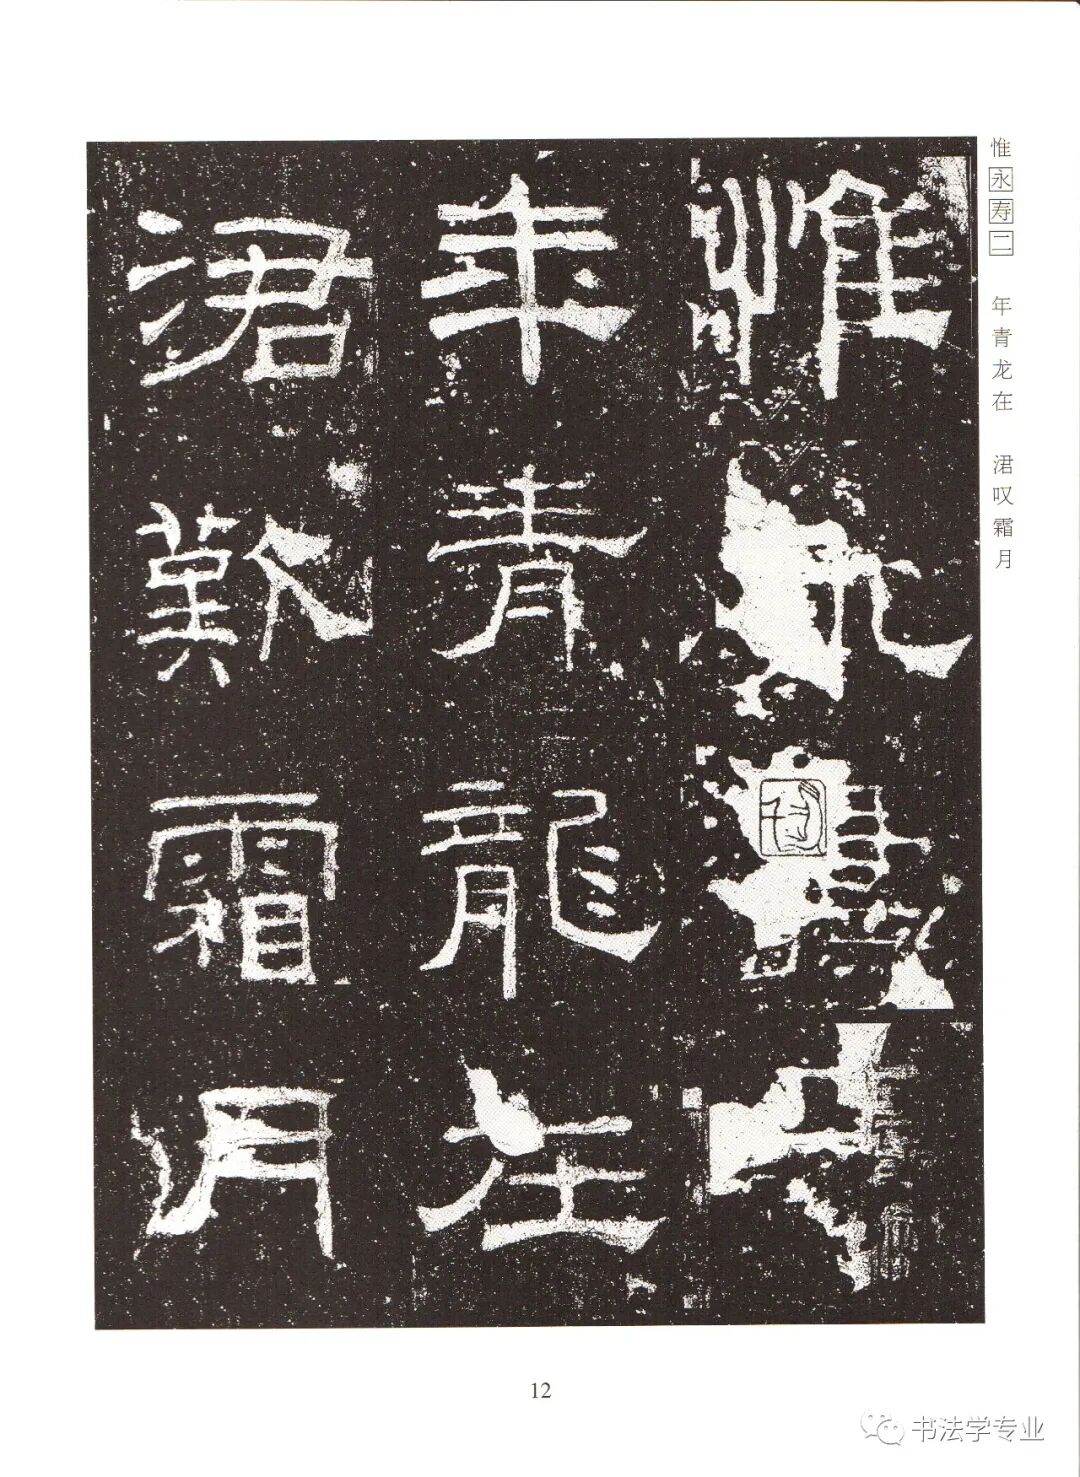 惟
年青龍在
涒歎霜月
惟永寿二 年青龙在 涒叹霜月
12
书法学专业